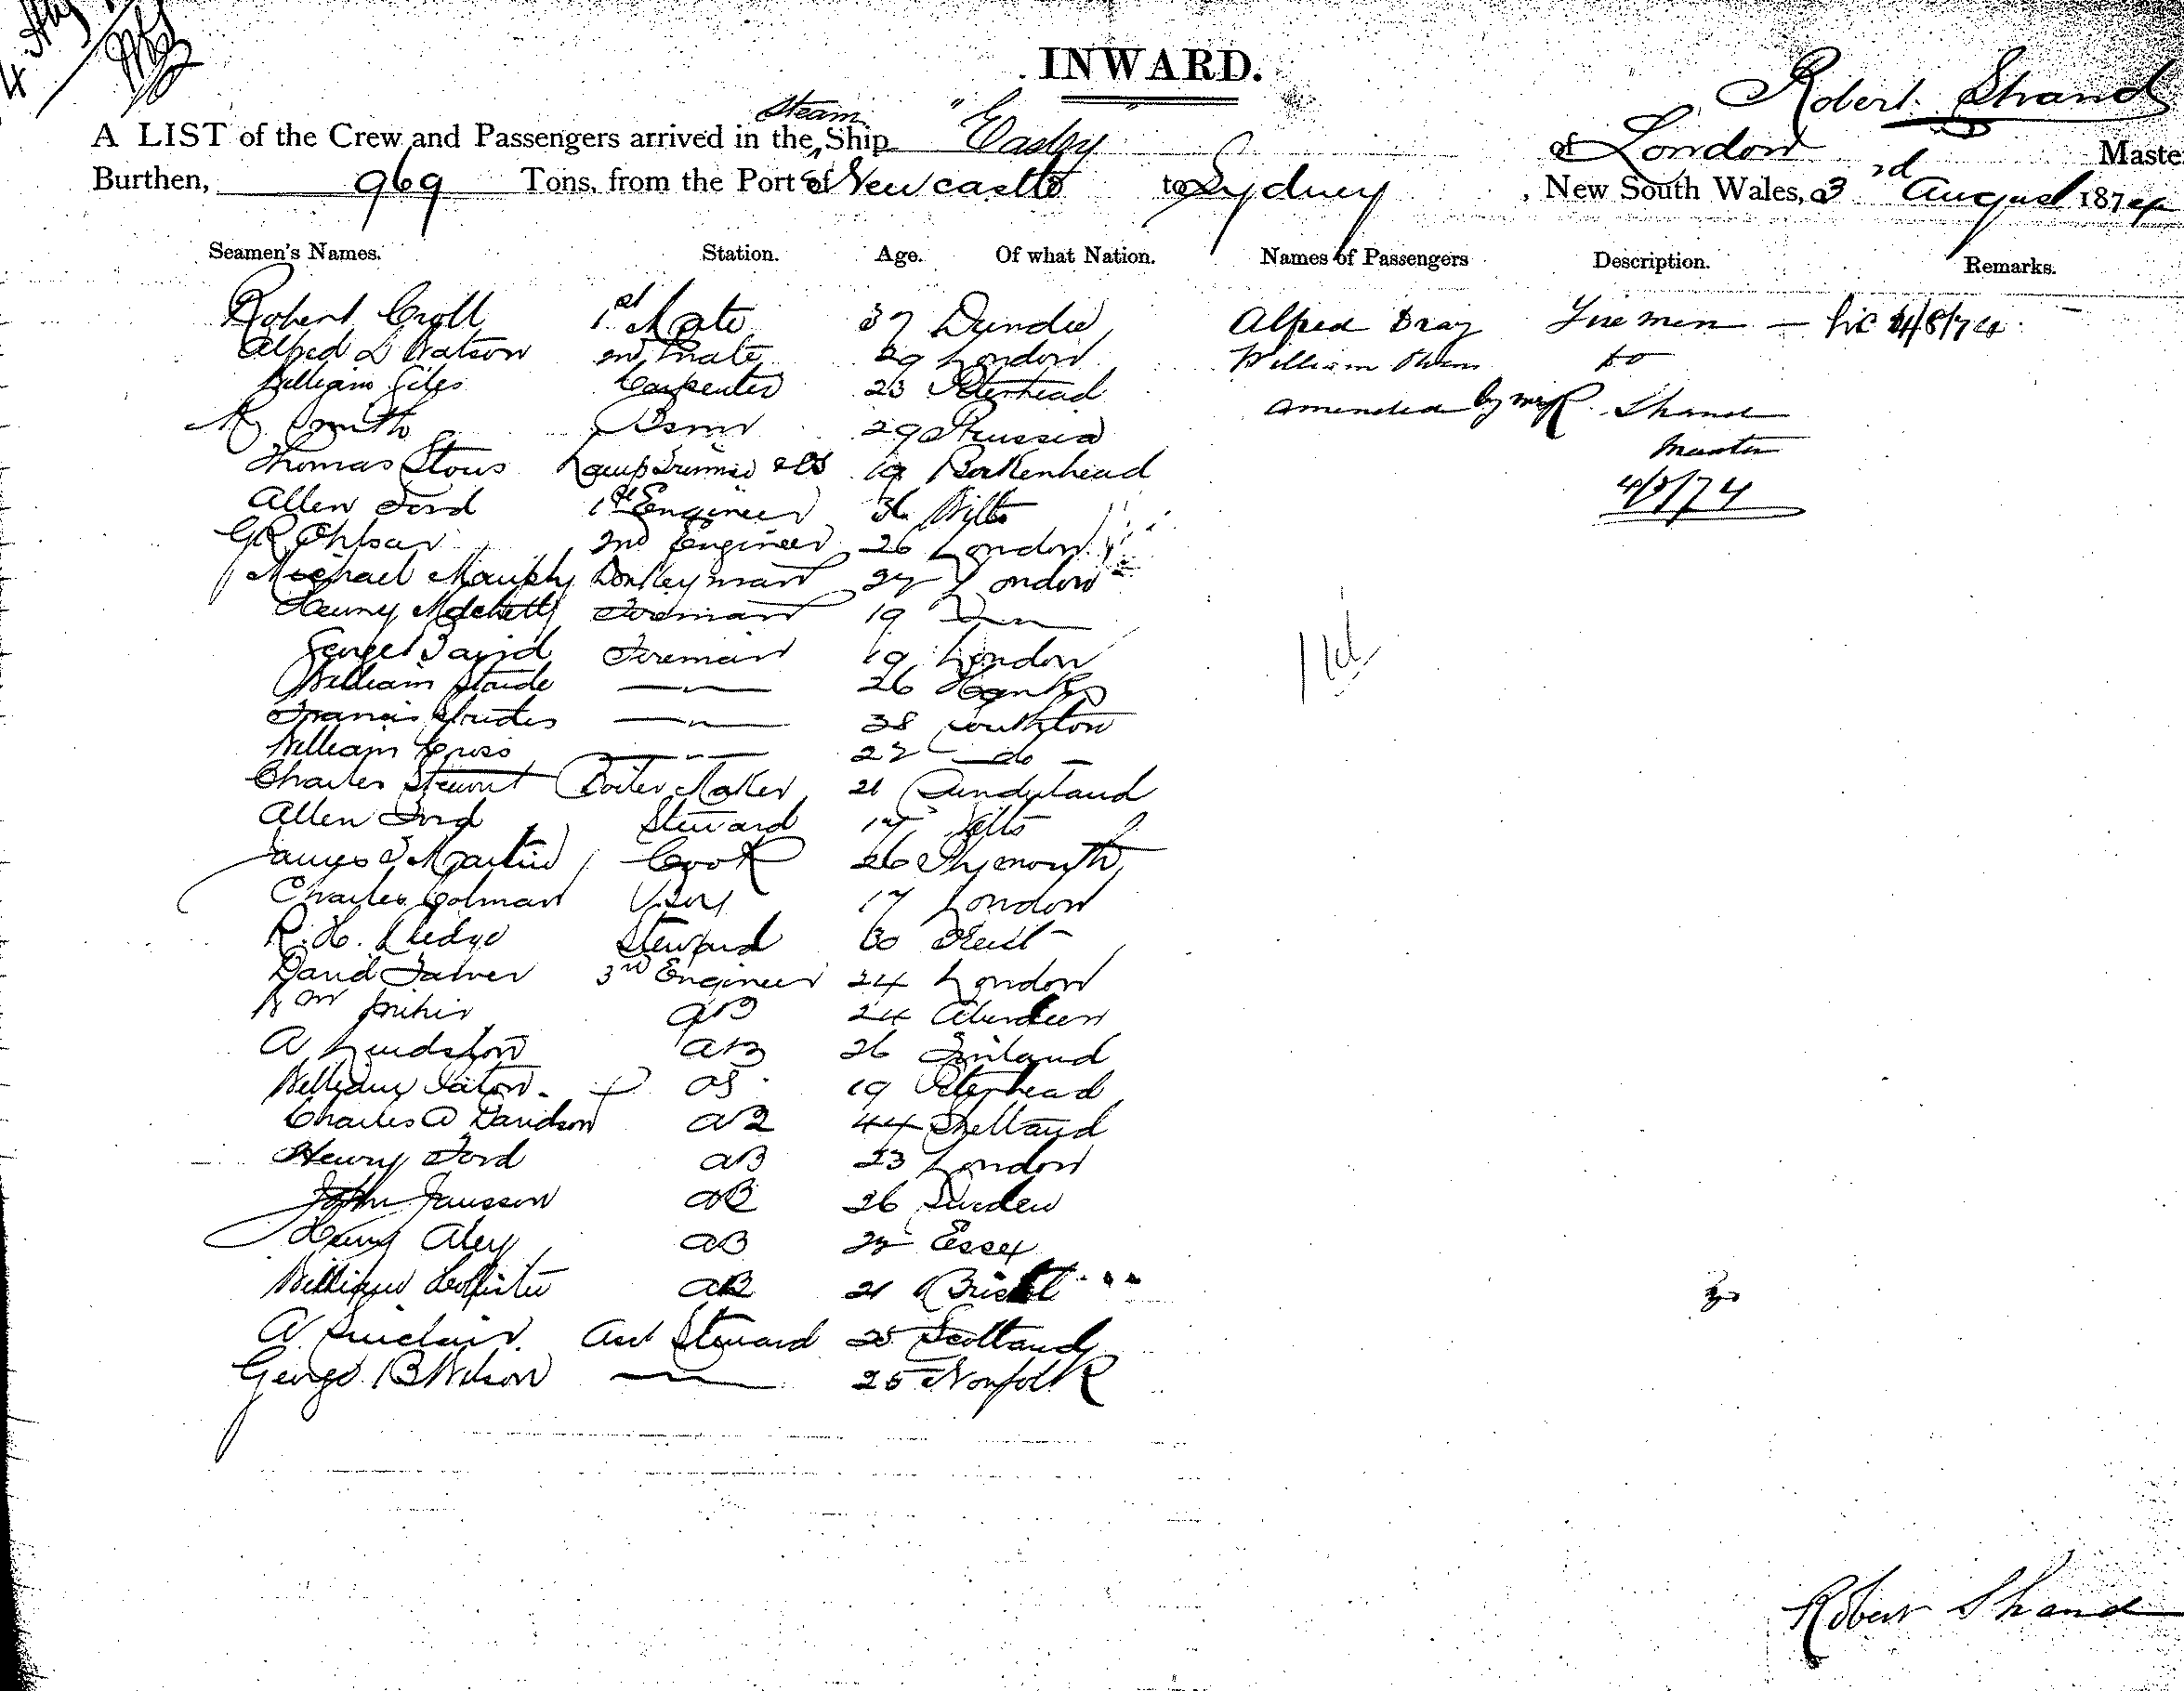 INWARD.
Robert Shand
A LIST of the Crew and Passengers arrived in the Steam Ship "Easby" of London Maste
Burthen, 969 Tons, from the Port of Newcastle to Sydney, New South Wales, 3rd August 1874
Seamen's Names. Station. Age. Of what Nation. Names of Passengers Description. Remarks.
Robert Croll 1st Mate 37 Dundee Alfred Bray Firemen 4/8/74
Alfred D Watson 2nd Mate 29 London William Do
William Giles Carpenter 23 Peterhead amended by me R. Shand
Smith Bsmn 29 Prussia Master
Thomas Stous Lamp Trimmer & OS 19 Birkenhead
Allen Ford 1st Engineer 36 Wilts 4/8/74
GR 2nd Engineer 26 London
Michael Murphy Donkeyman 27 London
Henry Fireman 19
George Baird Fireman 19 London
William Slaide — " — 26 Hants
Francis — " — 38 Southton
William Cross — " — 22 — do —
Charles Stewart Boiler Maker 21 Sunderland
Allen Ford Steward 17 Wilts
James Martin Cook 26 Plymouth
Charles Colman Boy 17 London
R. H. Sledge Steward 30 Kent
David 3rd Engineer 24 London
Wm AB 24 Aberdeen
A Lindstrom AB 26 Finland
William Paton OS 19 Peterhead
Charles A Davidson AB 44 Shetland
Henry Ford AB 23 London
John Jansson AB 26 Sweden
Henry Aley AB Essex
William AB 21 Bristol
A Sinclair. Asst Steward 25 Scotland
George B Wilson — " — 25 Norfolk
Robert Shand